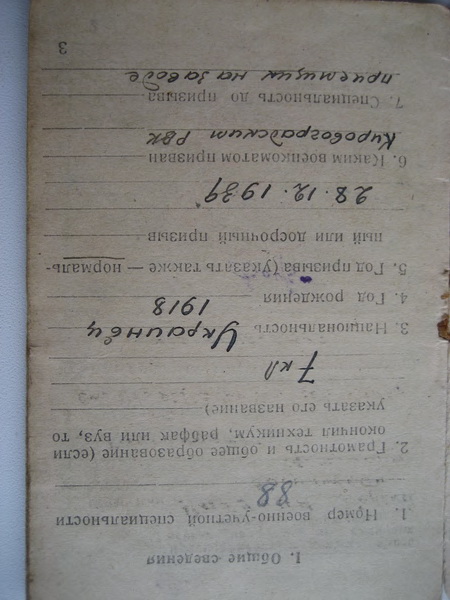 I. Общие сведения
1. Номер военно-учетной специальности
88
2. Грамотность и общее образование (если
окончил техникум, рабфак или вуз, то
указать его название)
7 кл
3. Национальность Украинец
4. Год рождения 1918
5. Год призыва (указать также — нормаль-
ный или досрочный призыв
28.12.1939
6. Каким военкоматом призван
Кировоградским РВК
7. Специальность до призыва
приемщик на заводе
3